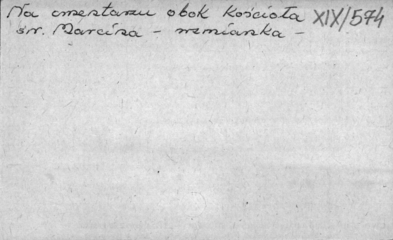 Na cmentarzu obok kościoła XIX/574
św. Marcina - wzmianka -